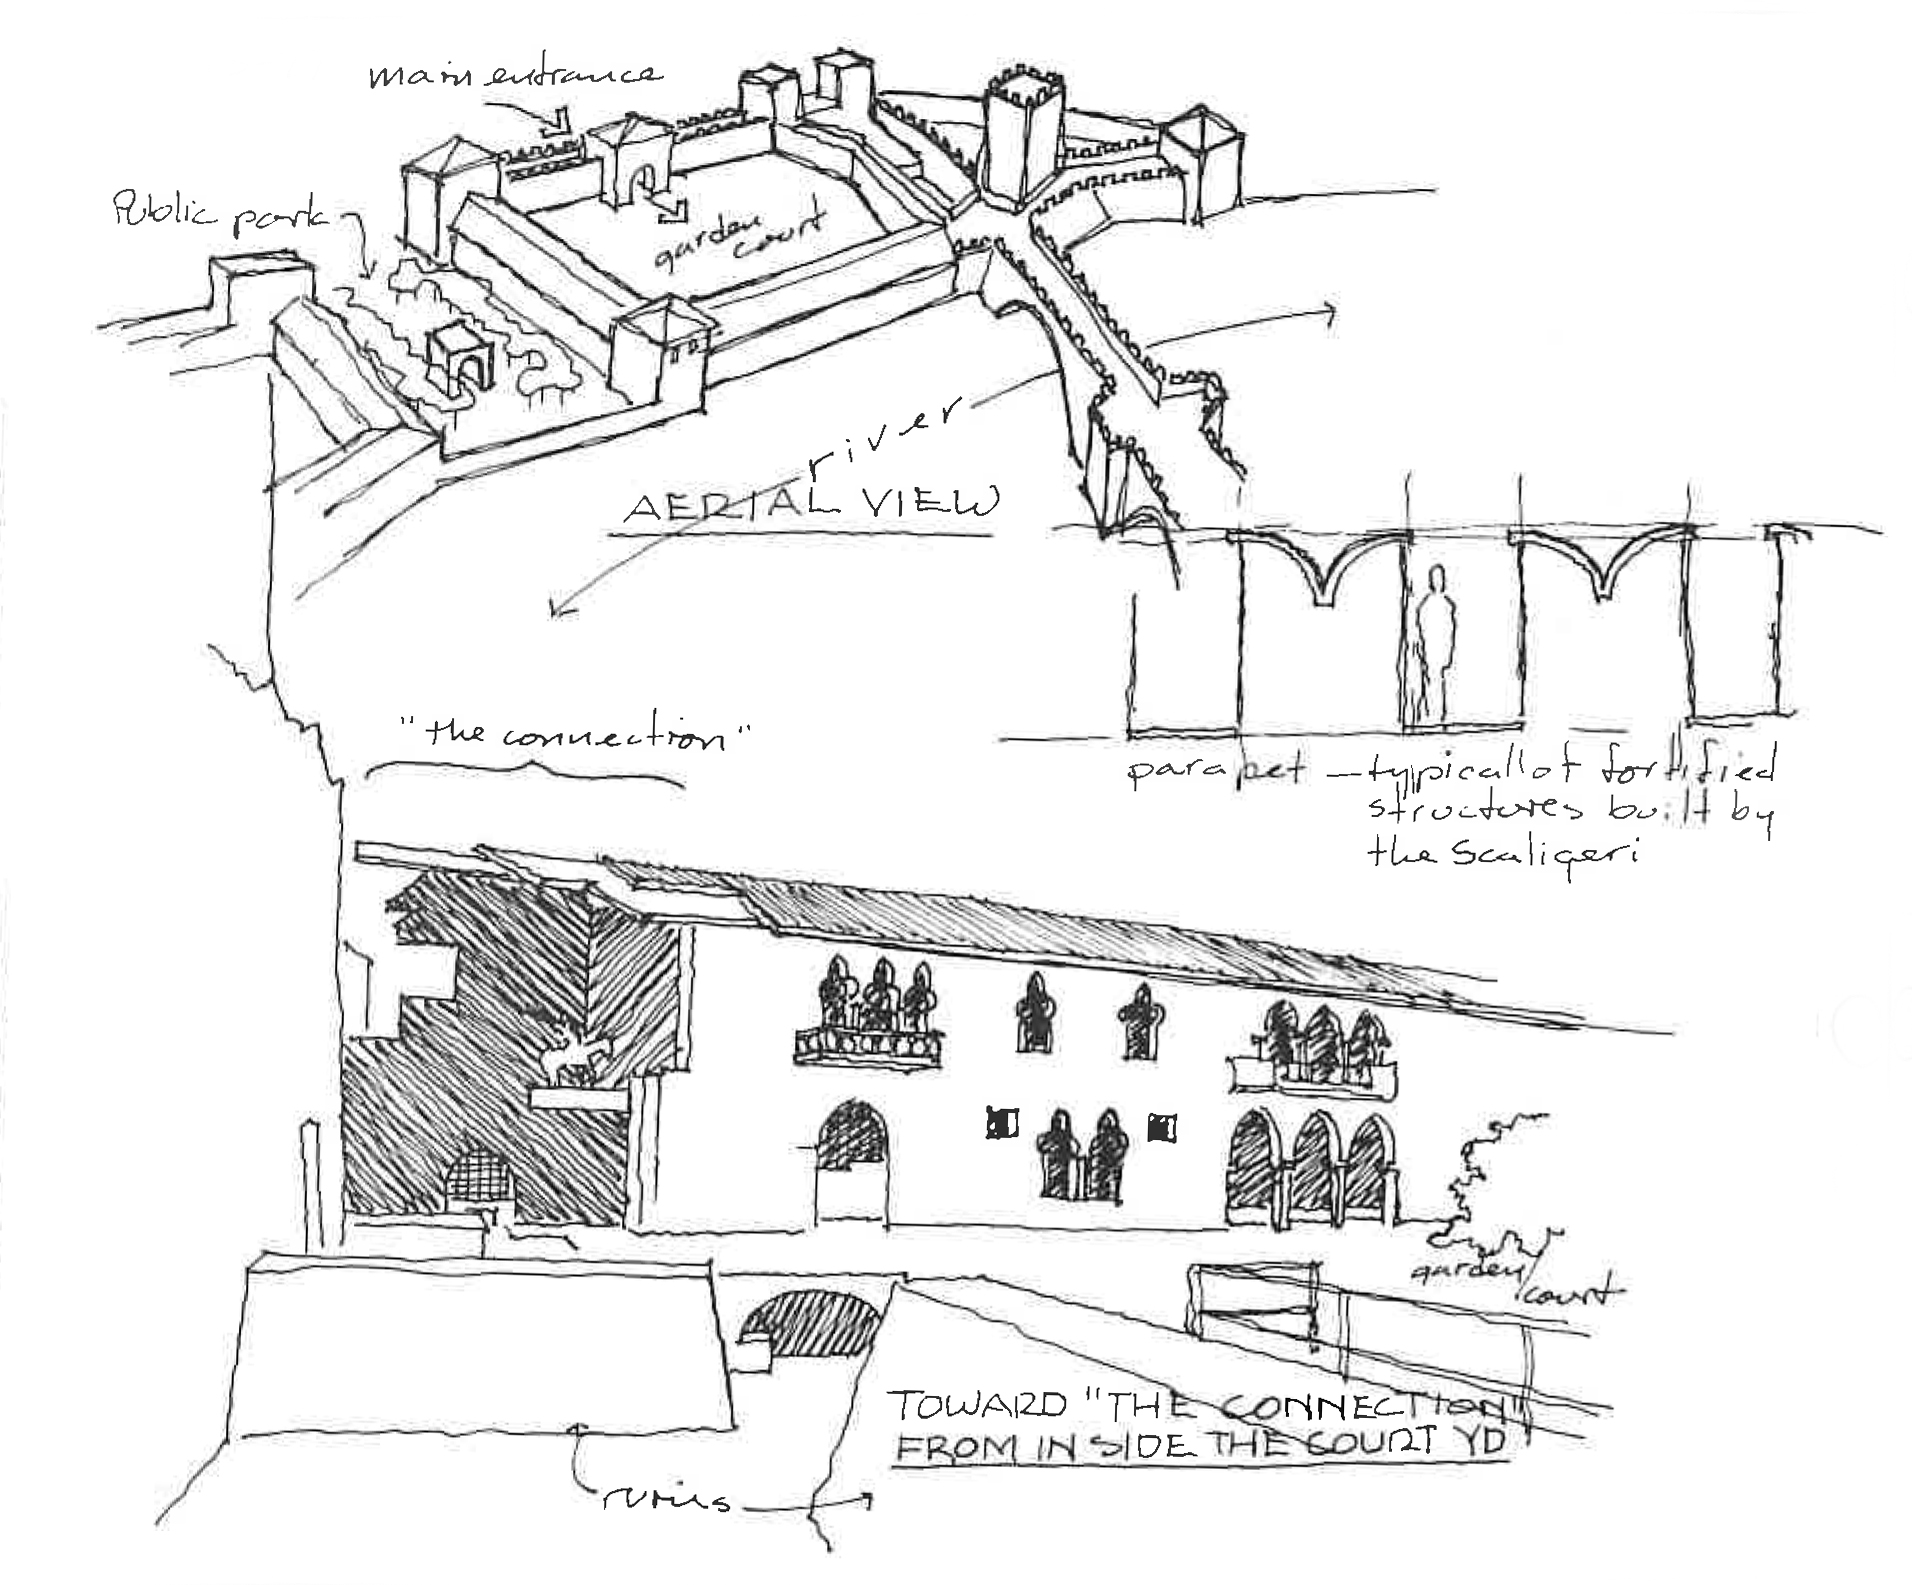 main entrance
Public park
garden
court
river
AERIAL VIEW
"the connection"
parapet — typical of fortified
structures built by
the Scaligeri
garden
court
TOWARD "THE CONNECTION"
FROM IN SIDE THE COURT YD
ruins